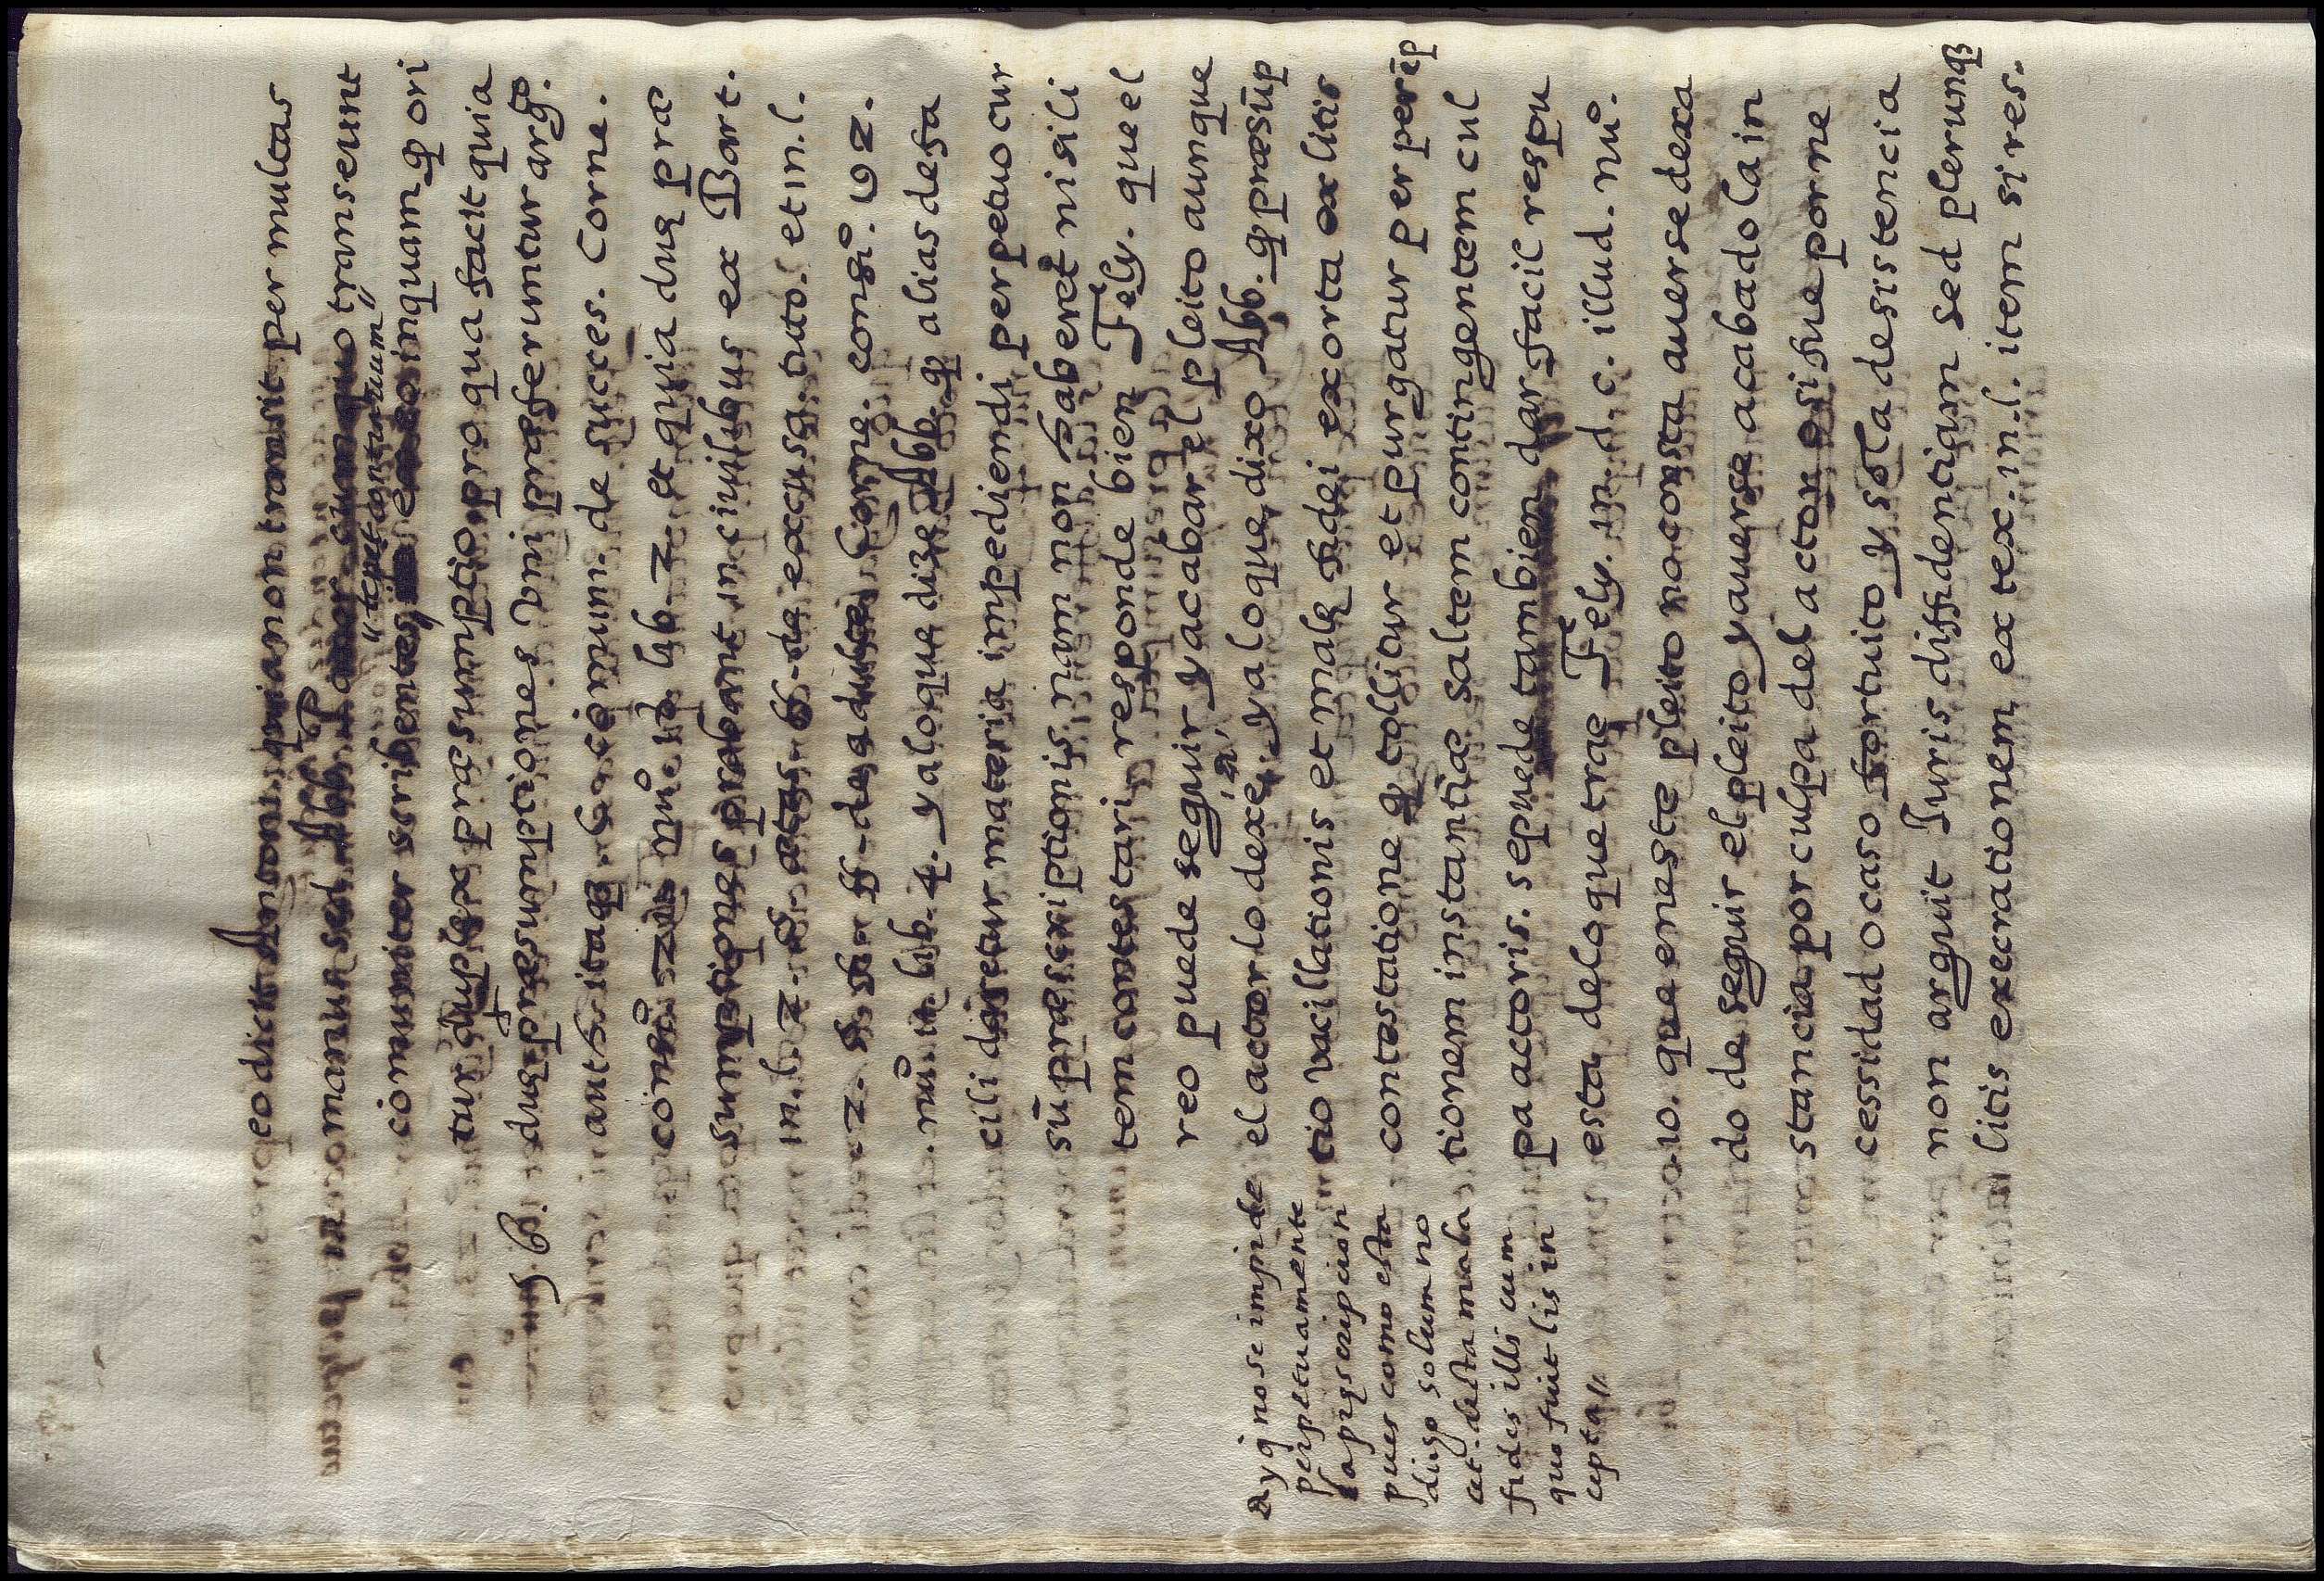 eo dicit Antoni quia non transit per multas
manus sed Abb.
comuniter scribentes "reputantur unum" inquam q ori
tur duplex præsumptio, pro qua facit quia
§ 6. duę præsumptiones vni præferuntur argo.
authēnticaq. hoc cōmuni. de succes. Corne.
consi. 212. nu. 19. lib. 2. et quia duę præ
sumptiones probant in ciuilibus ex Bart.
in. l. 2. §. ætas. ff. de excusa. tuto. l. et in. l.
2. ff. de adulte Corne. consi. 92.
nu. 11. lib. 4. y a lo que dize Abb. q alias defa
cili daretur materia impediendi perpetuo cur
sū præscriptionis. nam non haberet nisi li
tem contestari, responde bien Fely. que el
reo puede seguir y acabar el pleito aunque
el actor lo dexe, y a lo que dixo Abb. q præsūp
tio vacillationis et malę fidei exorta ex litis
contestatione q tollitur et purgatur per perēp
tionem instantiæ saltem contingentem cul
pa actoris. se puede tambien dar facil respu
esta de lo que trae Fely. in. d. c. illud. nu.
10. que en este pleito no consta auerse dexa
do de seguir el pleito y auerse acabado la in
stancia por culpa del actor o si fue por ne
cessidad o caso fortuito y sola desistencia
non arguit Iuris diffidentiam sed plerunq
litis execrationem, ex tex. in. l. item si res.
a y q no se impide
perpetuamente
la pręscripcion
pues como esta
dicho solum no
cet. desta mala
fides illi cum
quo fuit lis in
cepta//